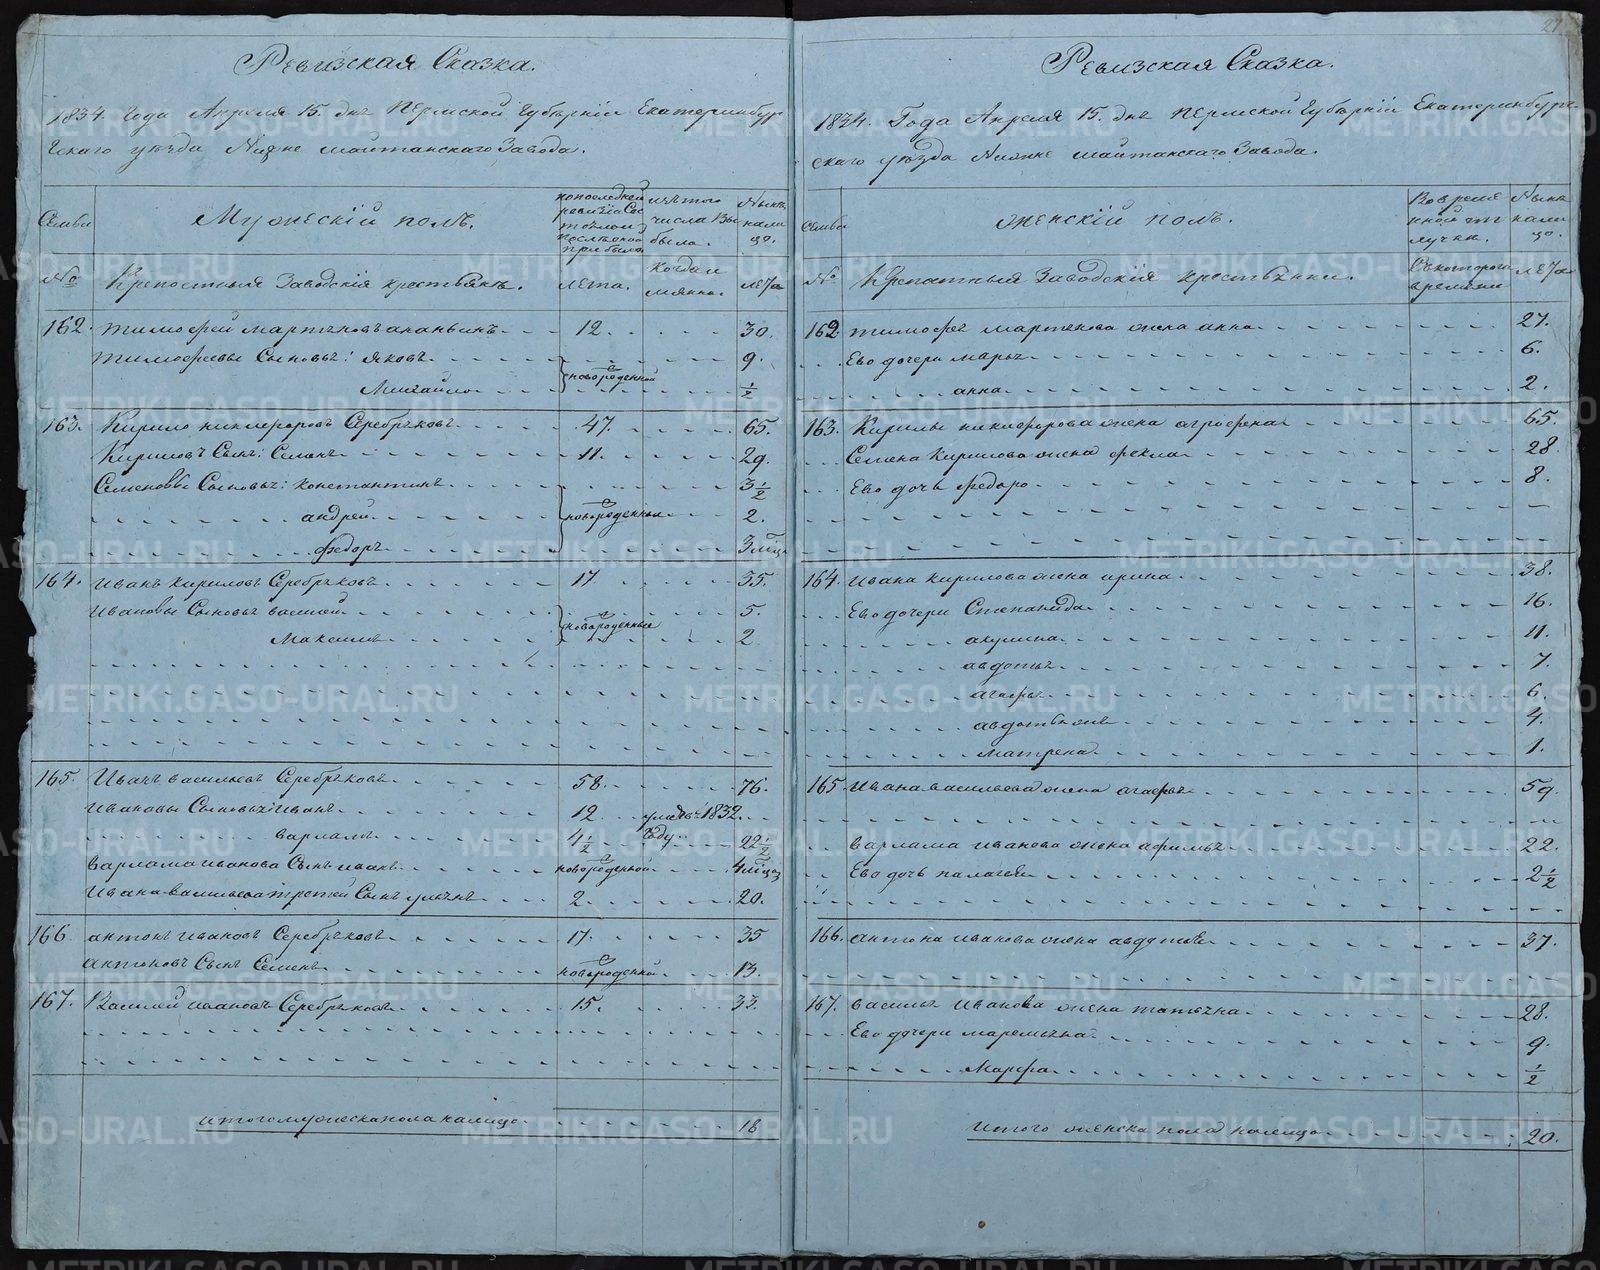 Ревизская Сказка.
1834. Года Апреля 15. дня Пермской Губернïи Екатеринбур
гскаго уезда Нижне Шайтанскаго Завода.
Семьи
Мужескïй полъ.
по последней ревизïи Сос тояло и после оной прибыло
изъ того числа Вы было.
Ныне нали цо.
№
Крепостныя Заводскïя крестьяне.
лета.
когда и мянно.
лета
162. тимофей мартыновъ ананьинъ 12. 30.
тимофеевы Сыновья: яковъ 9.
Михайло новороденной ½
163. Кирило никифоровъ Серебряковъ 47. 65.
Кириловъ Сынъ: Семенъ 11. 29.
Семеновы Сыновья: константинъ 3½
андрей новороденныя 2.
федоръ 3 м҃ца
164. иванъ кириловъ Серебряковъ 17 35.
ивановы Сыновья василей 5.
Максимъ новороденныя 2
165. Иванъ васильевъ Серебряковъ 58. 76.
ивановы Сыновья: иванъ 12 умеръ 1832.
варламъ 4½ Году 22½
варлама иванова Сынъ иванъ новороденной 4 м҃ца
Ивана васильева третей Сынъ ульянъ 2 20.
166 антонъ ивановъ Серебряковъ 17. 35
антоновъ Сынъ Семенъ новороденной 13.
167. Василей ивановъ Серебряковъ 15. 33.
итого мужеска пола налицо 18
27
Ревизская Сказка.
1834. Года Апреля 15. дня Пермской Губернïи Екатеринбург
скаго уезда Нижне шайтанскаго Завода.
Семьи
женскïй полъ.
Во время нной отлучки.
Ныне нали цо.
№
Крепатныя Заводскïя крестьянки.
Съ котораго времени
лета
162 тимофея мартынова жена анна 27.
Ево дочери марья 6.
анна 2.
163. Кирилы никифорова жена агрофена 65.
Семена Кирилова жена фекла 28
Ево дочь федора 8.
164. ивана кирилова жена ирина 38.
Ево дочери Степанида 16.
акулина 11.
авдотья 7.
агафья 6.
авдотья же 4.
матрена 1.
165. ивана васильева жена агафья 59.
варлама иванова жена афимья 22.
Ево дочь палагея 2½
166. антона иванова жена авдотья 37.
167. василья иванова жена татьяна 28.
Ево дочери маремьяна 9.
Марфа ½
итого женска пола налицо 20.